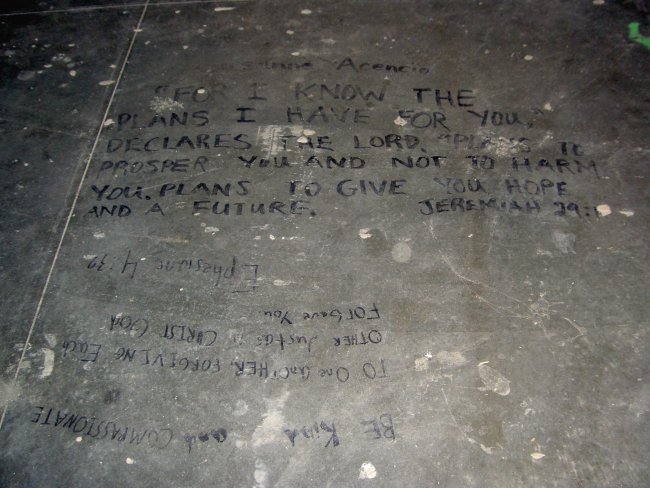 Acencio
"FOR I KNOW THE
PLANS I HAVE FOR YOU,"
DECLARES THE LORD. "PLANS TO
PROSPER YOU AND NOT TO HARM
YOU. PLANS TO GIVE YOU HOPE
AND A FUTURE. JEREMIAH 29:1
BE Kind and COMPASSIONATE
TO One anOTHER, FORGIVING Each
OTHER Just as in CHRIST GOD
FORGave You
Ephesians 4:32